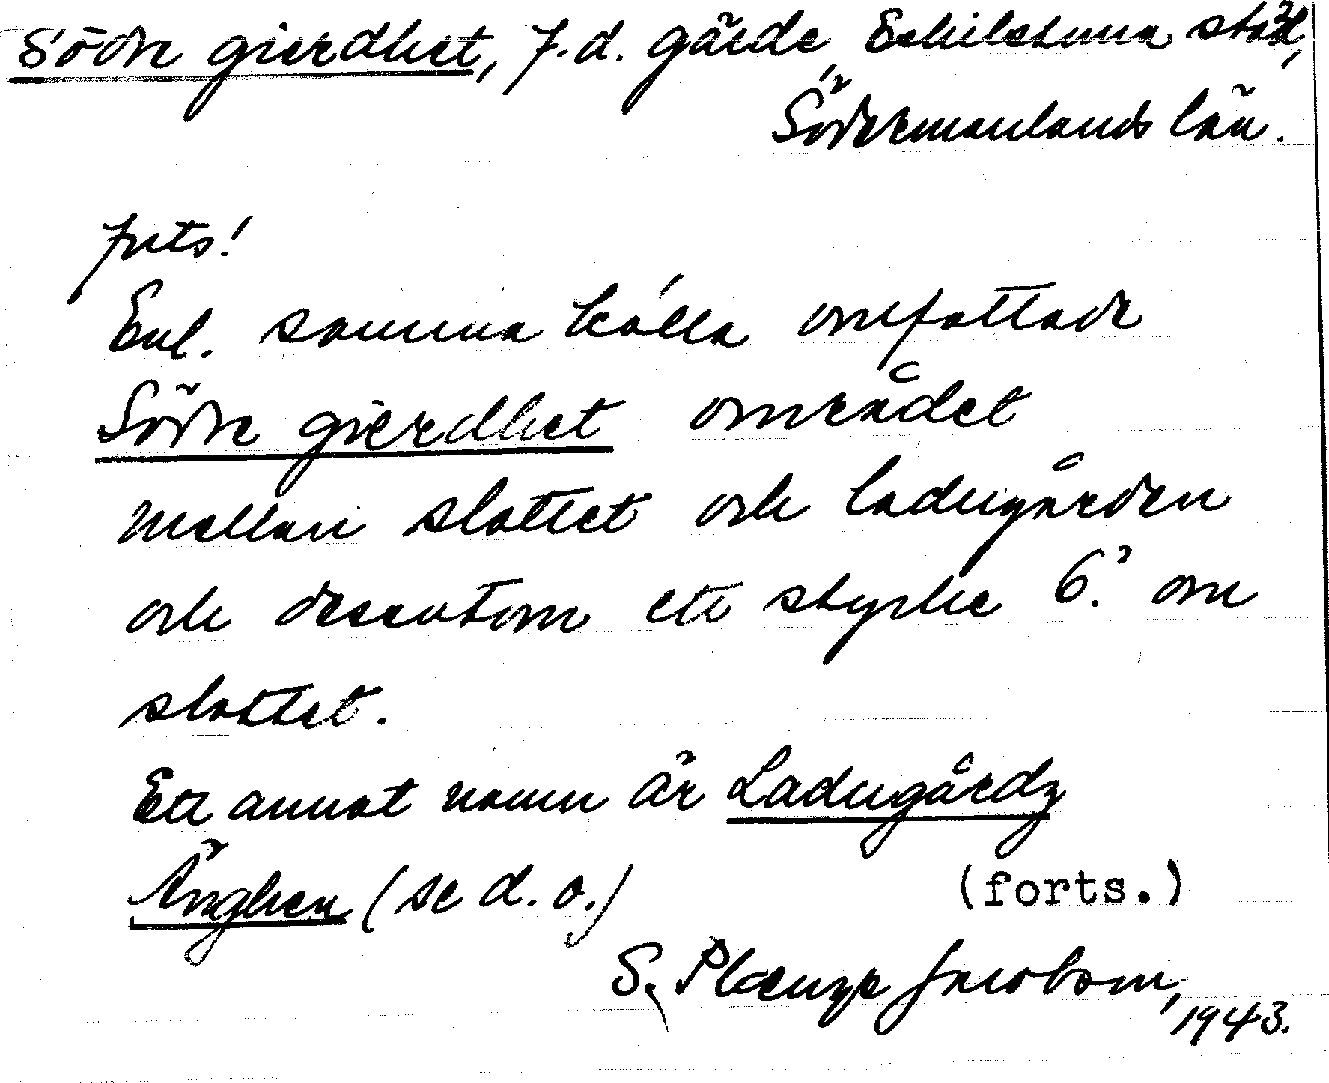 Södre gierdhet, f.d. gärde, Eskilstuna stad,
Södermanlands län.
forts!
Enl. samma källa omfattade
Södre gierdhet området
mellan slottet och ladugården
och dessutom ett stycke 6. om
slottet.
Ett annat namn är Ladugårdz
Änghen (se d. o.) (forts.)
S. Plænge Jacobson,
1943.